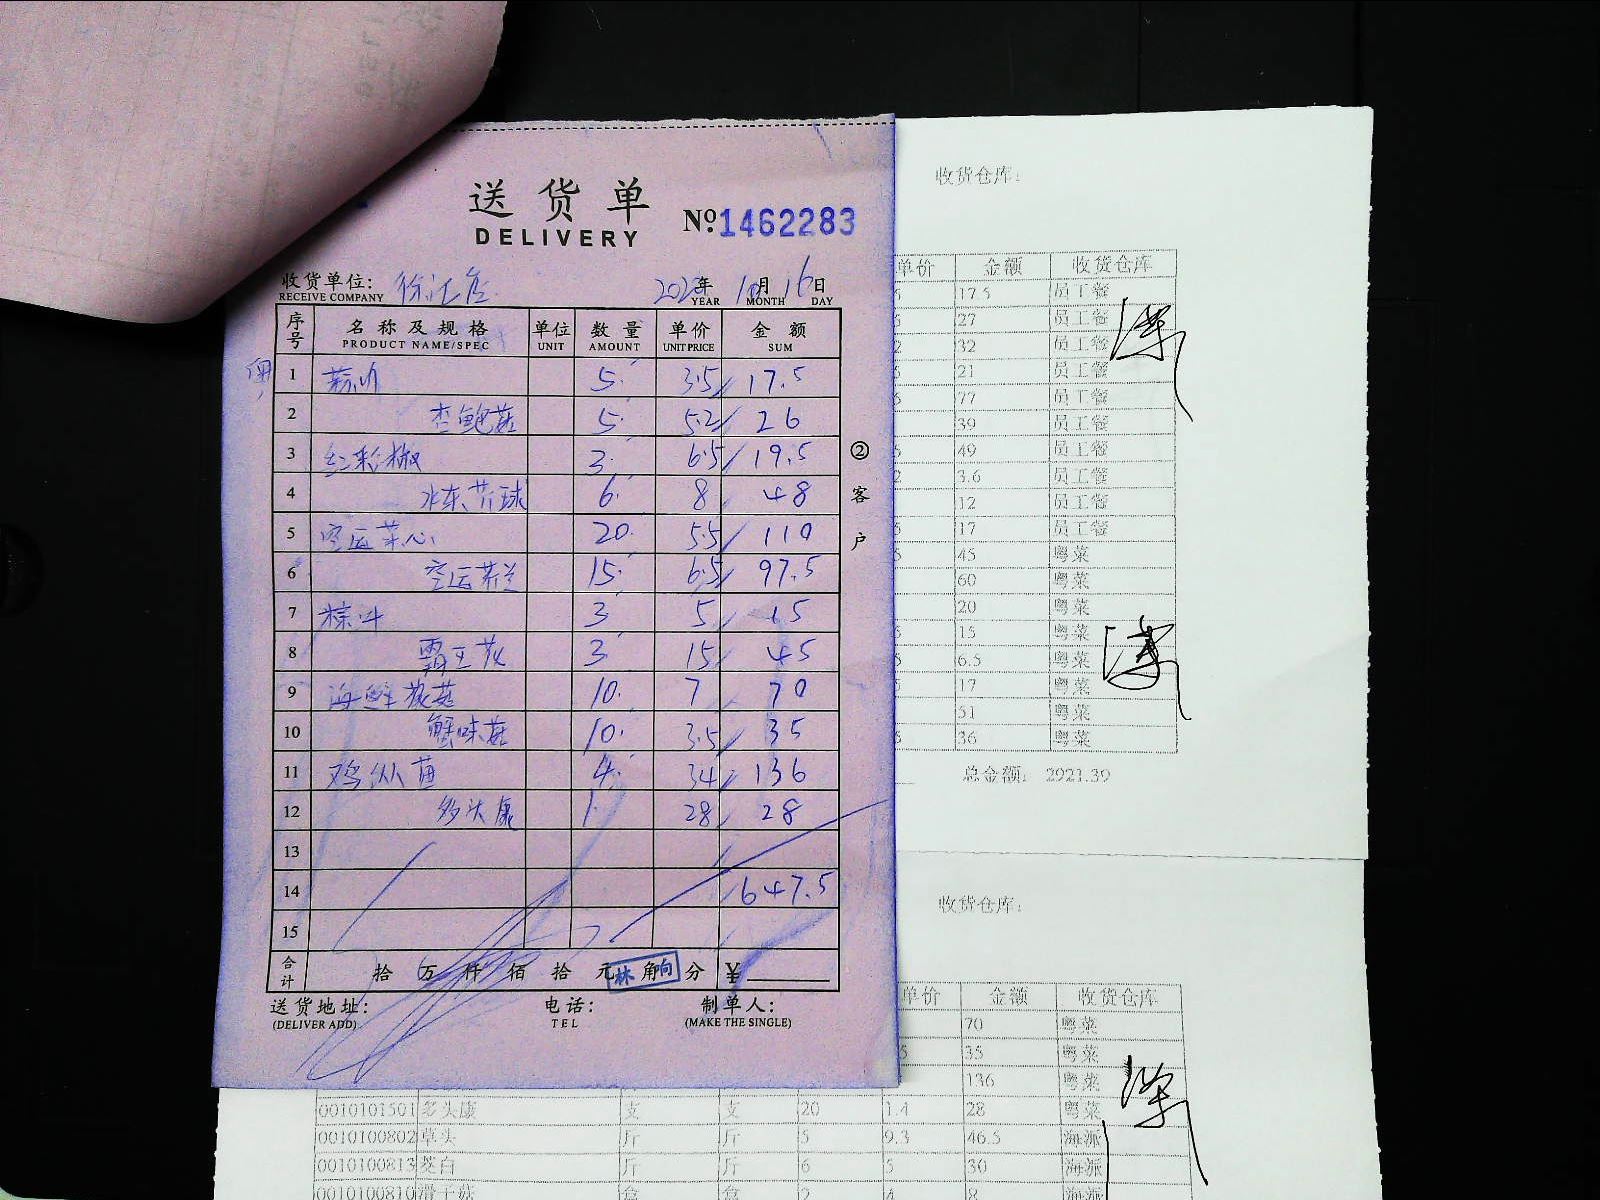 送货单
DELIVERY
No: 1462283
收货单位: 徐汇店
RECEIVE COMPANY
年 YEAR 10月 MONTH 16日 DAY
序号 名称及规格 单位 数量 单价 金额
PRODUCT NAME/SPEC UNIT AMOUNT UNIT PRICE SUM
1 蒜叶 5 3.5 17.5
2 杏鲍菇 5 5.2 26
3 红彩椒 3 6.5 19.5
4 水东芥球 6 8 48
5 空运菜心 20 5.5 110
6 空运芥兰 15 6.5 97.5
7 3 5 15
8 霸王花 3 15 45
9 海鲜菇 10 7 70
10 蟹味菇 10 3.5 35
11 鸡枞菌 4 34 136
12 多头康 1 28 28
13
14 647.5
15
合计 拾 万 仟 佰 拾 元 角 分 ¥
林 向
送货地址: 电话: 制单人:
(DELIVER ADD) TEL (MAKE THE SINGLE)
② 客户
收货仓库:
单价 金额 收货仓库
17.5 员工餐
27 员工餐
32 员工餐
21 员工餐
77 员工餐
39 员工餐
49 员工餐
3.6 员工餐
12 员工餐
17 员工餐
45 粤菜
60 粤菜
20 粤菜
15 粤菜
6.5 粤菜
17 粤菜
51 粤菜
36 粤菜
总金额: 2921.39
收货仓库:
单价 金额 收货仓库
70 粤菜
35 粤菜
136 粤菜
0010101501 多头康 支 支 20 1.4 28 粤菜
0010100802 草头 斤 斤 5 9.3 46.5 海派
0010100813 茭白 斤 斤 6 5 30 海派
0010100810 滑子菇 盒 盒 2 4 8 海派